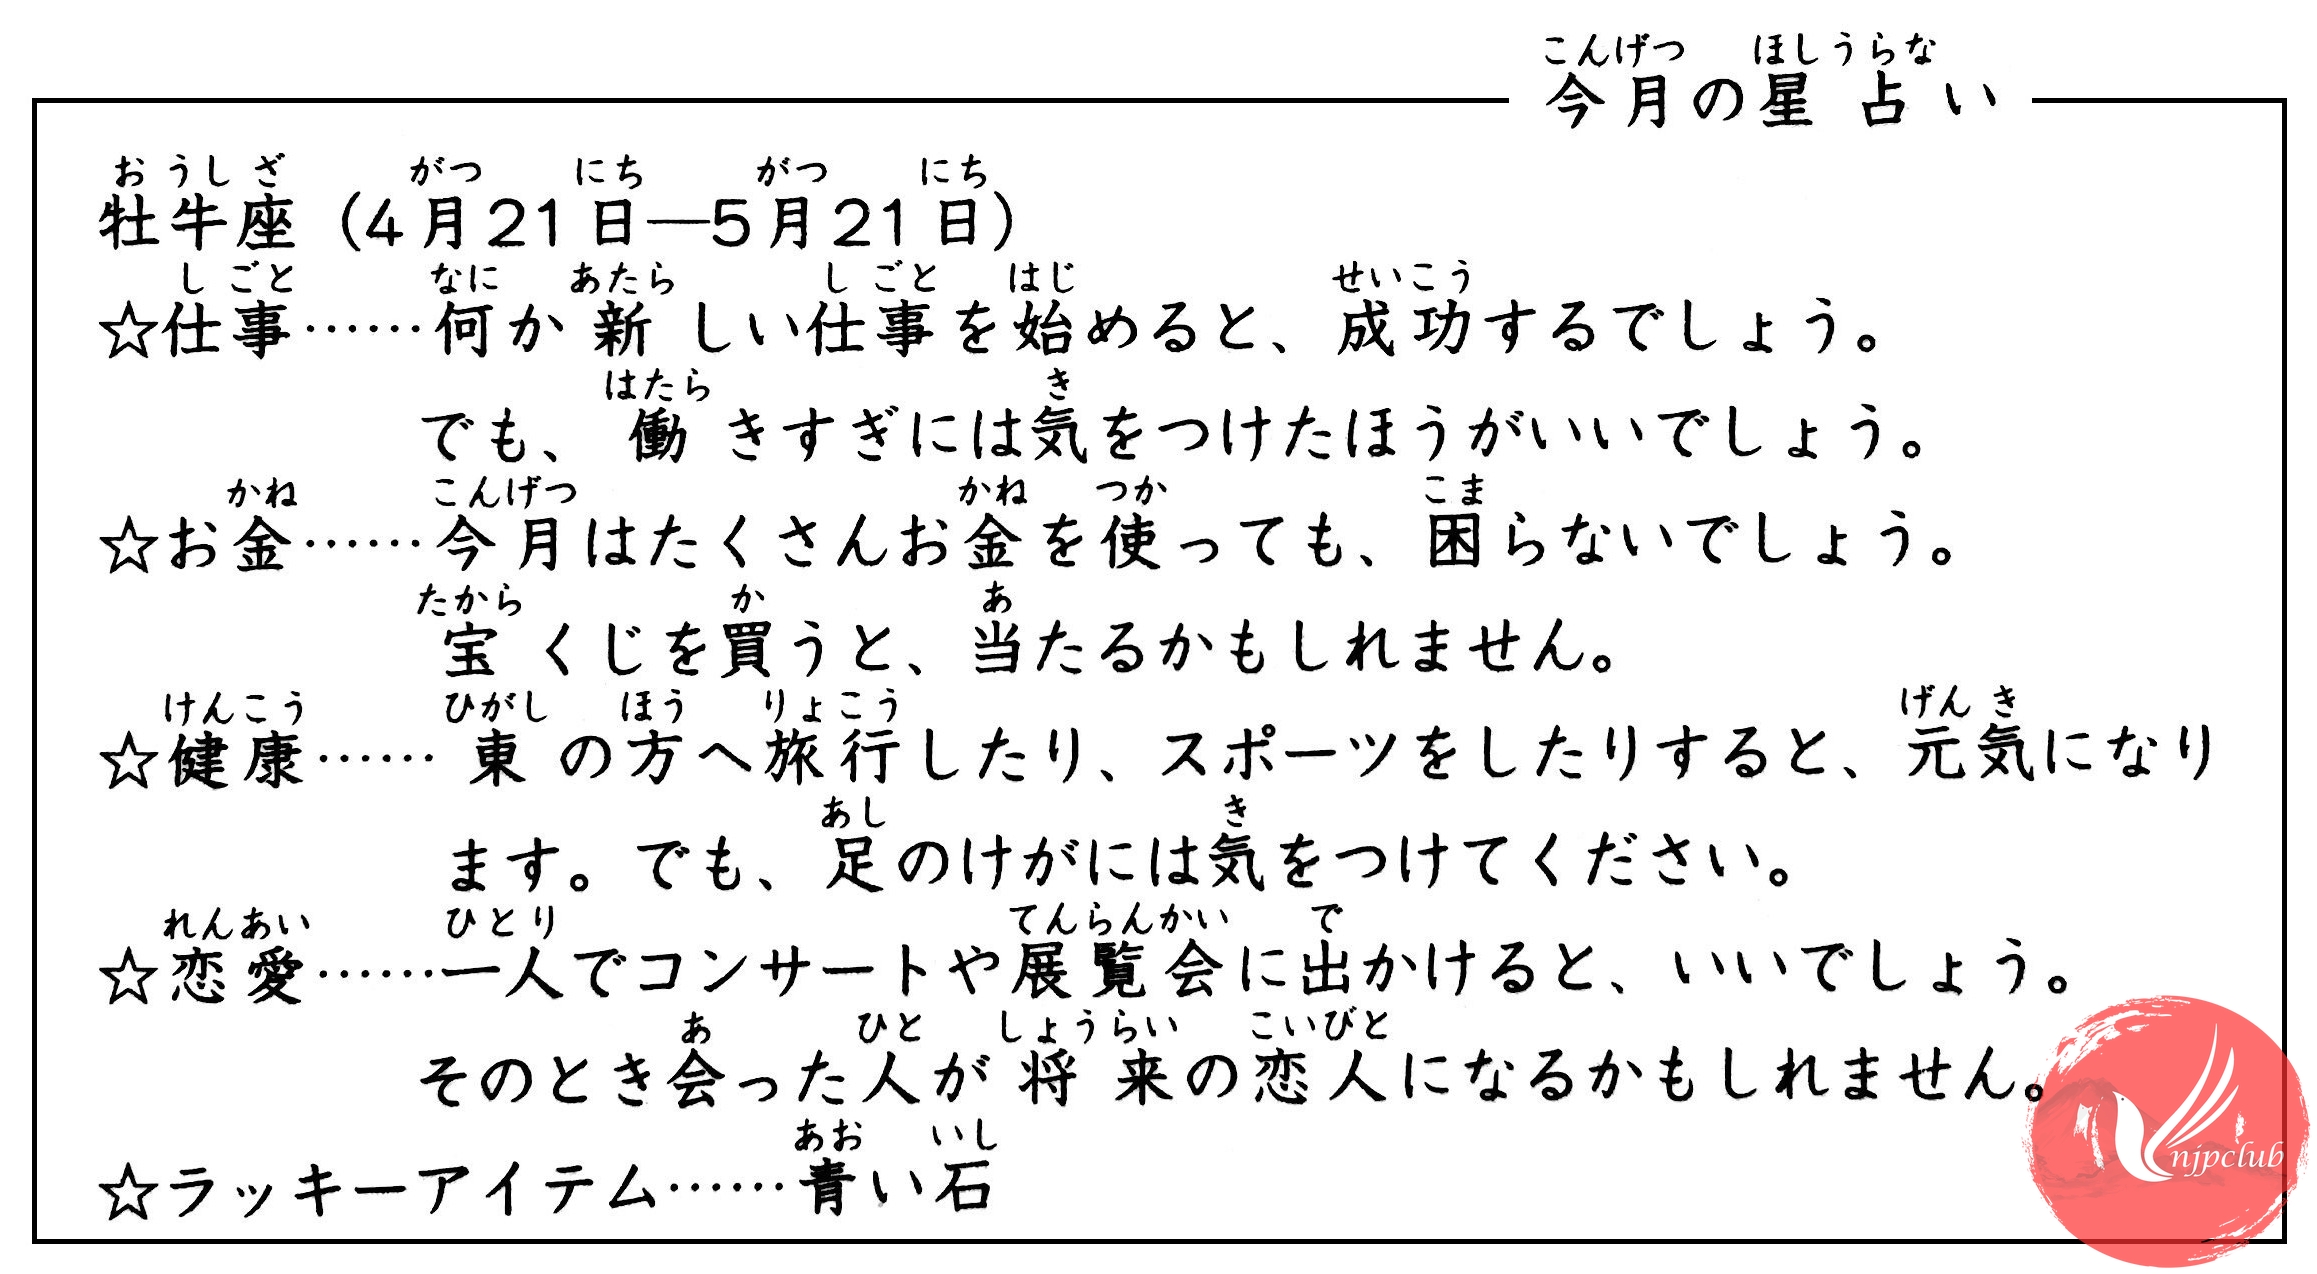 こんげつ ほしうらな
今月の星占い
おうしざ がつ にち がつ にち
牡牛座（4月21日―5月21日）
しごと なに あたら しごと はじ せいこう
☆仕事……何か新しい仕事を始めると、成功するでしょう。
はたら き
でも、働きすぎには気をつけたほうがいいでしょう。
かね こんげつ かね つか こま
☆お金……今月はたくさんお金を使っても、困らないでしょう。
たから か あ
宝くじを買うと、当たるかもしれません。
けんこう ひがし ほう りょこう げんき
☆健康……東の方へ旅行したり、スポーツをしたりすると、元気になり
あし き
ます。でも、足のけがには気をつけてください。
れんあい ひとり てんらんかい で
☆恋愛……一人でコンサートや展覧会に出かけると、いいでしょう。
あ ひと しょうらい こいびと
そのとき会った人が将来の恋人になるかもしれません。
あお いし
☆ラッキーアイテム……青い石
njpclub